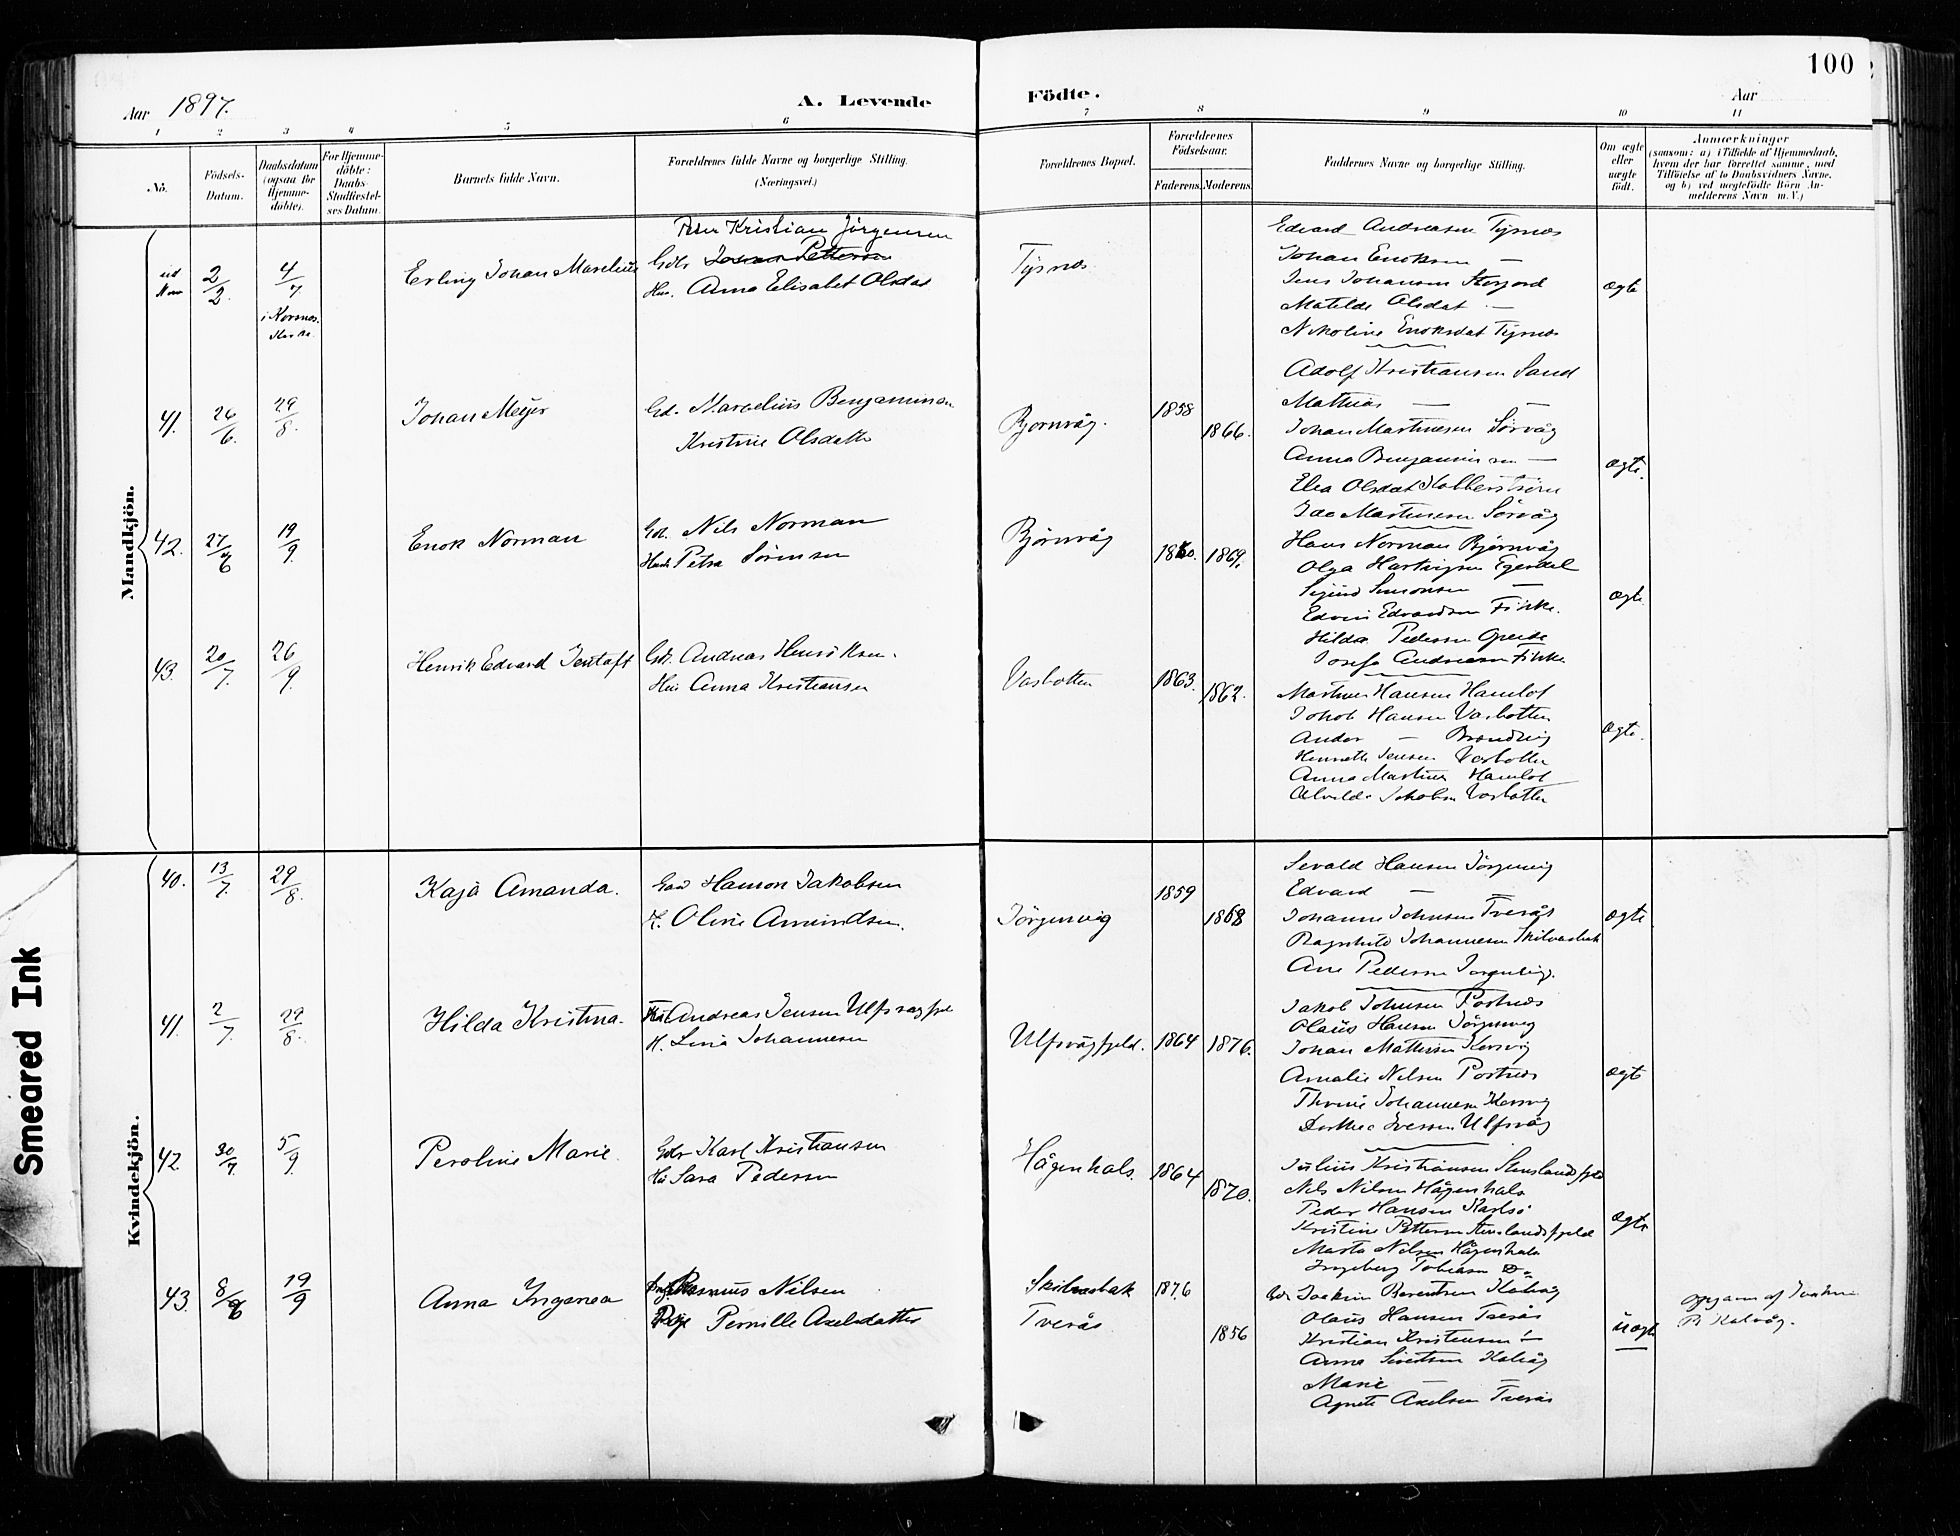 100
Aar 1897.
A. Levende
Födte.
Aar
1 2 3 4 5 6 7 8 9 10 11
No.
Födsels-
Datum.
Daabsdatum
(ogsaa for
Hjemme-
döbte).
For Hjemme-
döbte:
Daabs-
Stadfæstel-
ses Datum.
Barnets fulde Navn.
Forældrenes fulde Navne og borgerlige Stilling.
(Næringsvei.)
Forældrenes Bopæl.
Forældrenes
Födselsaar.
Faderens.
Moderens.
Faddernes Navne og borgerlige Stilling.
Om ægte
eller
uægte
födt.
Anmærkninger
(saasom: a) i Tilfælde af Hjemmedaab,
hvem der har forrettet samme, med
Tilföielse af to Daabsvidners Navne,
og b) ved uægtefödte Börn An-
melderens Navn m. V.)
Mandkjön.
2/2. 4/7 i Korsnes Kirke
Erling Johan Marelius
Kristian Jörgensen
Gdr. Pettersen
Hu. Anna Elisabet Olsdat
Tysnes
Edvard Andreasen Tysnes
Johan Enoksen —
Jens Johansen Storjord
Matilde Olsdat —
Nikoline Enoksdat Tysnes
ægte
41. 26/6. 29/8.
Johan Meyer
Gd. Marselius Benjaminsen
Kristine Olsdatter
Bjornvåg.
1858
1866.
Adolf Kristiansen Sand
Mathias — —
Johan Martinesen Sörvåg
Anna Benjaminsen —
Elea Olsdat Kobberström
Ida Martinesen Sörvåg
ægte.
42. 27/6 19/9.
Enok Norman
Gd. Nils Norman
Petra Sörensen
Björnvåg
1869.
Hans Norman Björnvåg
Olga Hartvigsen
Simonsen —
Edvin Edvardsen Finke.
Hilda Pedersen
Josefa Andreasen Finke
ægte
43. 20/7. 26/9.
Henrik Edvard Jentoft
Gdr. Andreas Henriksen.
Hu Anna Kristiansen
Vasbotten
1863.
1862.
Martines Hansen Hamlot
Jakob Hansen Vasbotten
Andor —
Jensen Vasbotten
Anna Martines Hamlot
Alvilde Jakobsen Vasbotten
ægte.
Kvindekjön.
40. 13/7. 29/8.
Kaja Amanda.
Hanson Jakobsen
H. Oline Amundsen.
Jörgenvig
1859
1868
Sevald Hansen Jörgenvig
Edvard —
Johanne Johnsen Tverås
Ragnhild Johannesen Skilvasbak
Ane Pedersen Jorgenvig.
ægte
41. 2/7. 29/8.
Hilda Kristina.
Andreas Jensen Ulfsvagfjel
H. Lina Johannesen
Ulfsvågfjeld.
1864
1876.
Jakob Johnsen Postnes
Olaus Hansen Jörgenvig
Johan Mathisen Korsvig
Amalie Nilsen Postnes
Johannesen Korsvig
Dorthea Iversen Ulfsvåg
ægte
42. 30/7. 5/9.
Peroline Marie.
Gdr Karl Kristiansen
Hu Sara Pedersen
Hågenhals.
1864
1870.
Julius Kristiansen Stenslandsfjeld
Nils Nilsen Hågenhals
Peder Hansen Karlsö
Kristine Pettersen Stenslandsfjeld
Marta Nilsen Hågenhals
Ingeborg Tobiasen Do
ægte
43. 8/6 19/9
Anna Ingenea
Rasmus Nilsen
Pige Pernille Axelsdatter
Skilvasbak
Tverås
1876
1856
Gdr Joakim Berentsen Kalvåg
Olaus Hansen Tverås
Kristian Kristensen —
Anna Sivertsen Kalvåg
Marie — —
Agnete Axelsen Tverås
uægte
Opgave af Joakim
B. Kalvåg.
Smeared Ink